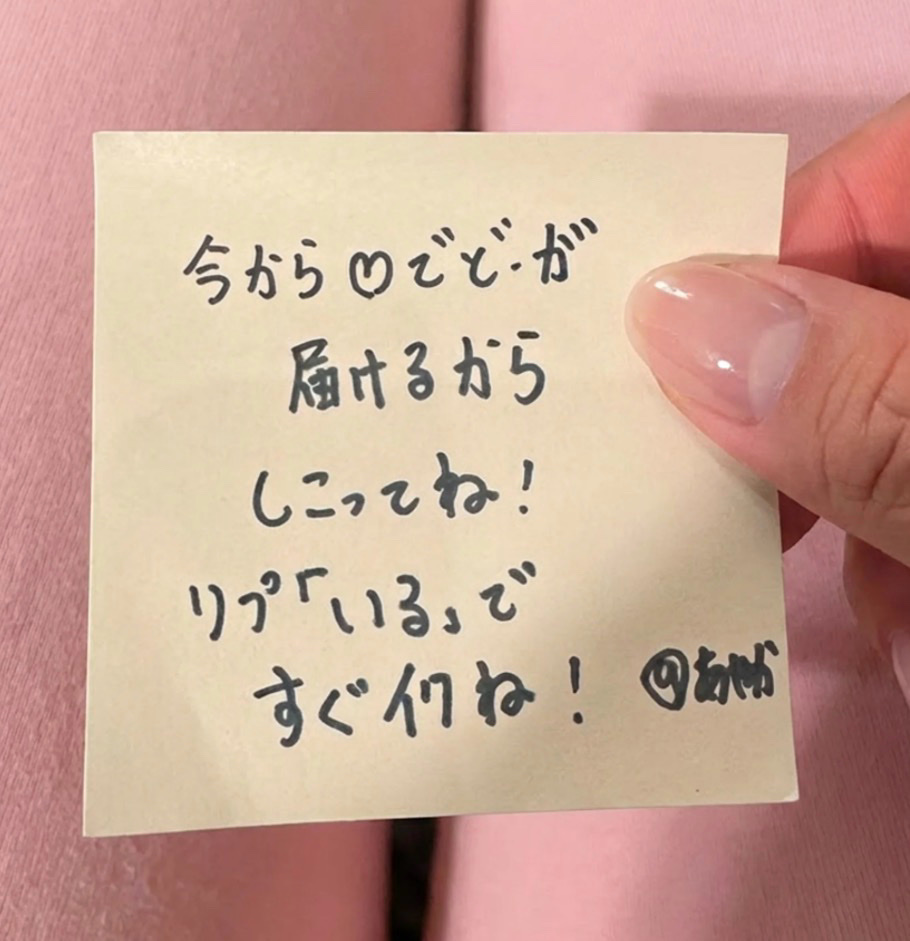 今から♡でど・が
届けるから
しこってね！
リプ「いる」で
すぐ行くね！ @あやか